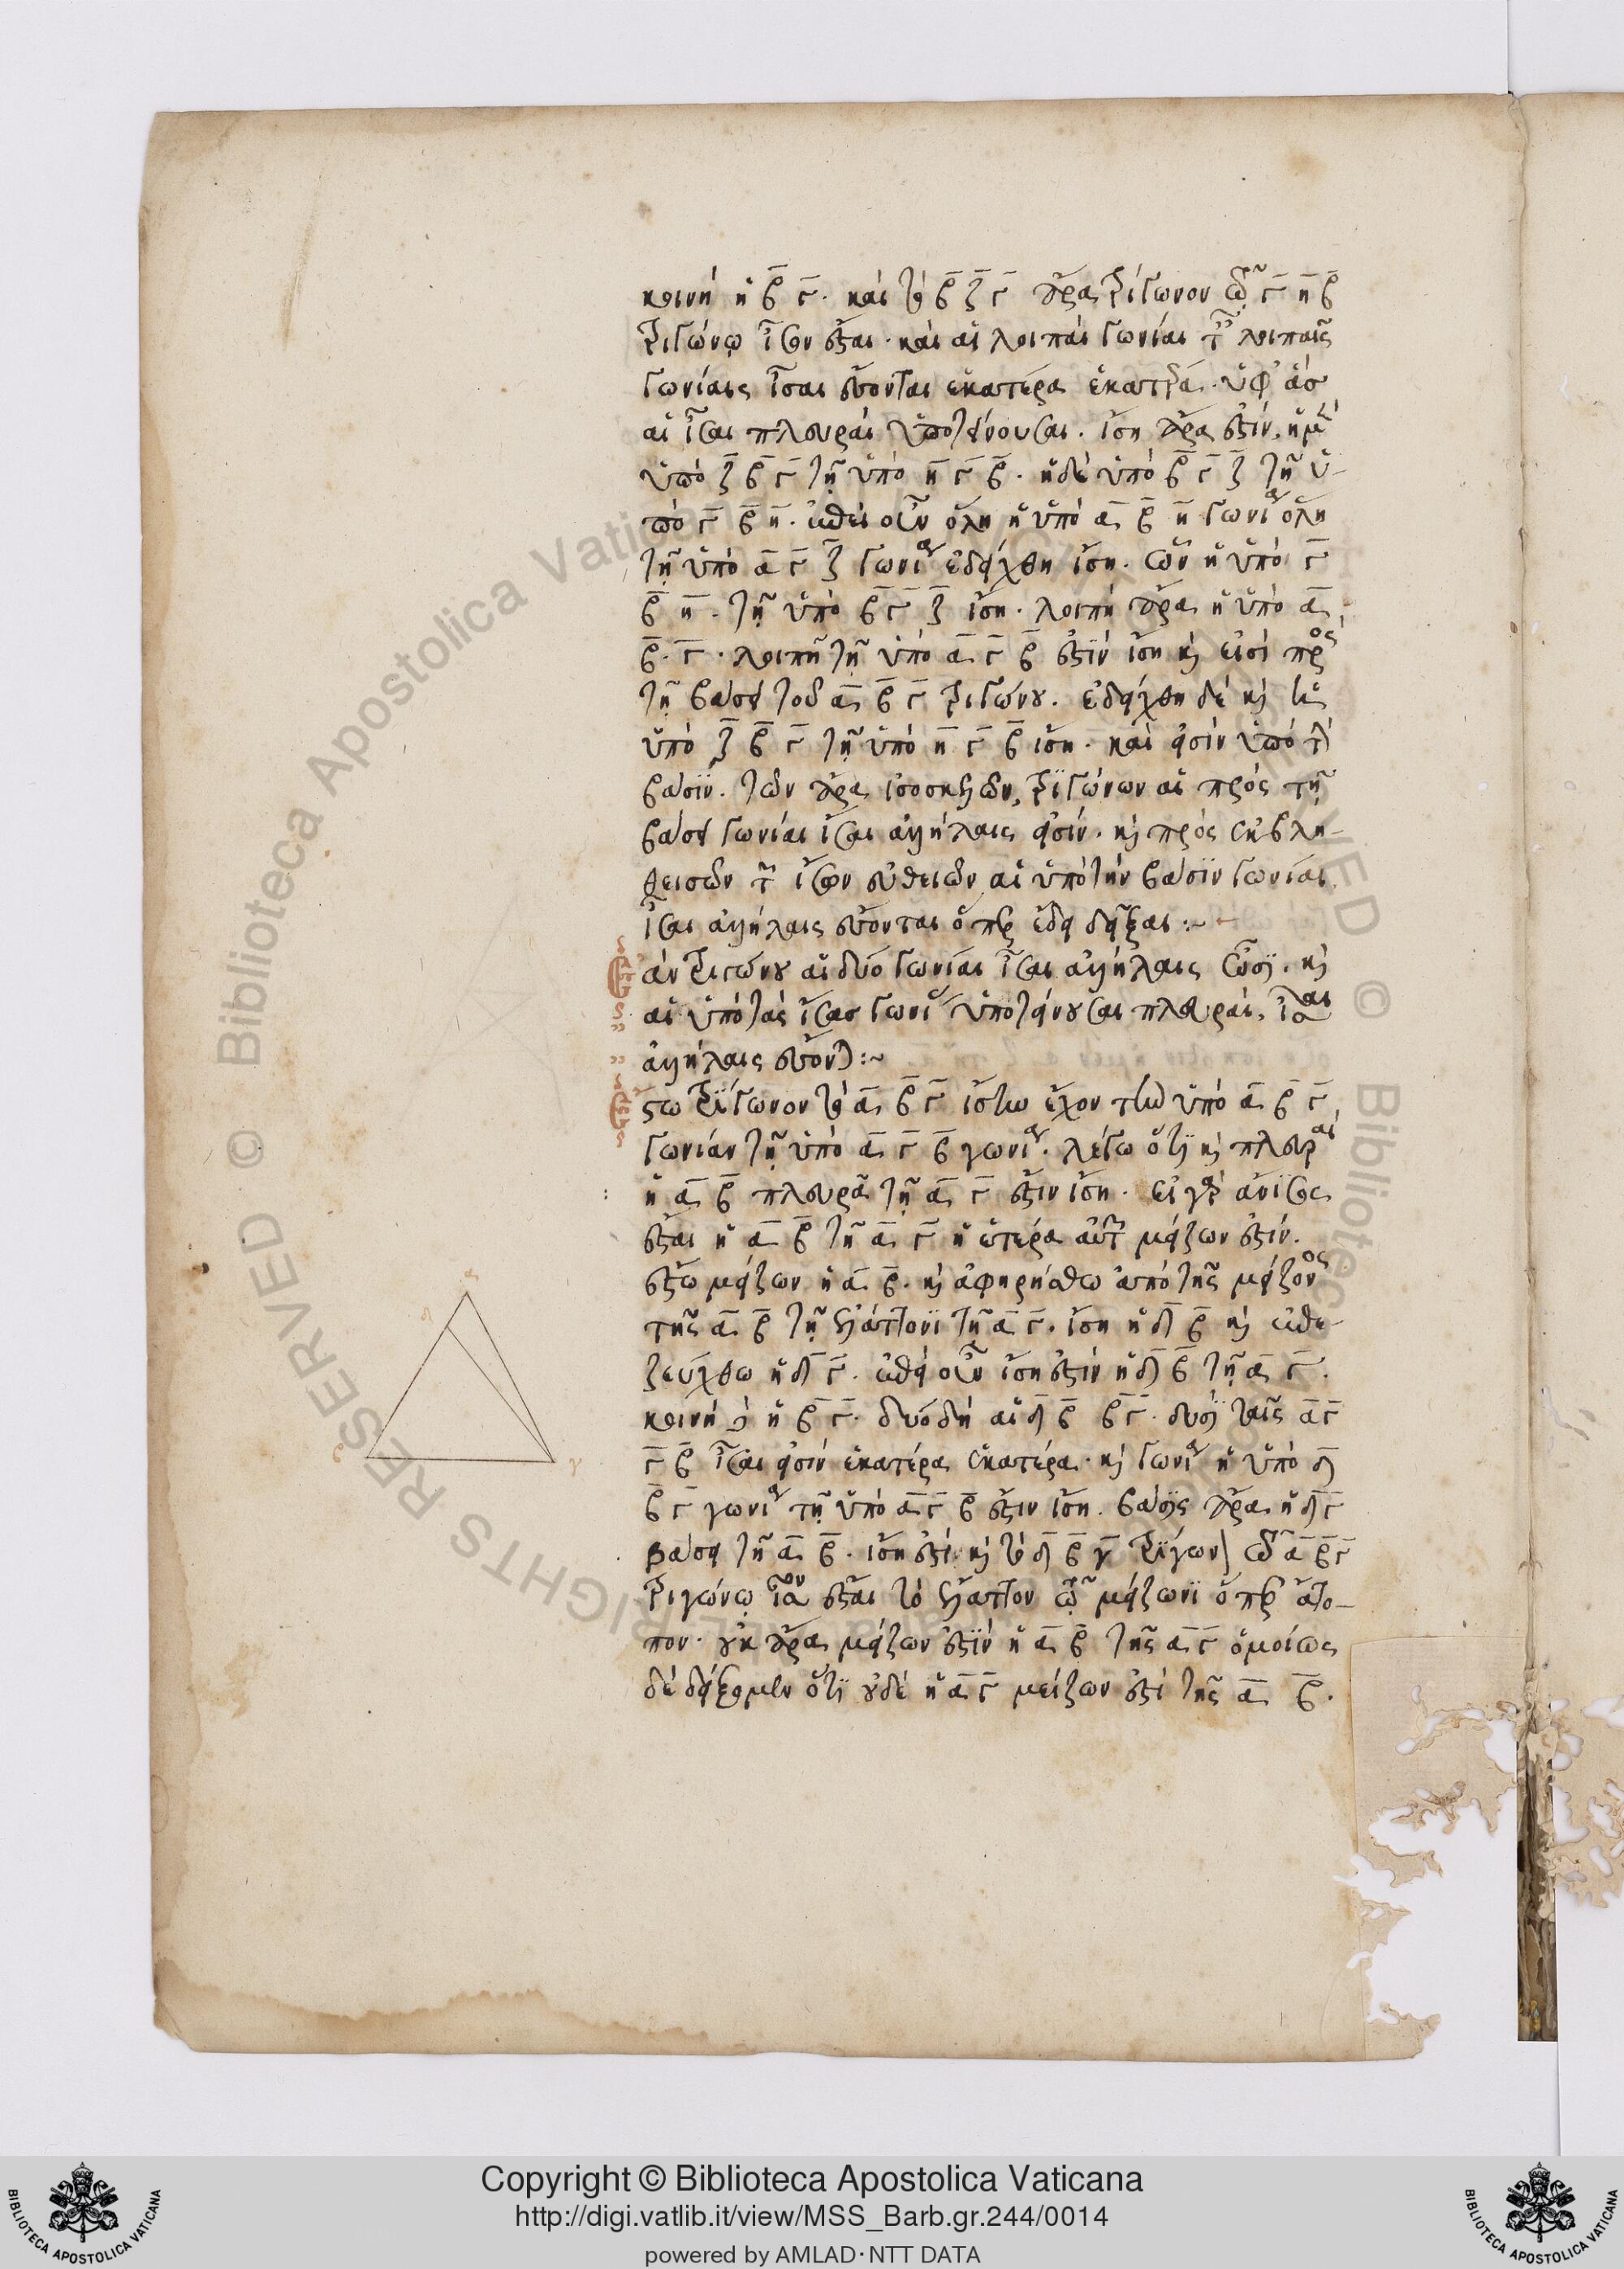 κοινὴ ἡ β γ. καὶ τὸ β ζ γ ἄρα τρίγωνον τῷ γ η β
τριγώνῳ ἴσον ἔσται. καὶ αἱ λοιπαὶ γωνίαι ταῖς λοιπαῖς
γωνίαις ἴσαι ἔσονται ἑκατέρα ἑκατέρα. ὑφ' ἃσ
αἱ ἴσαι πλευραὶ ὑποτείνουσαι. ἴση ἄρα ἐστίν, ἡ μὲν
ὑπὸ ζ β γ τῇ ὑπὸ η γ β. ἡ δὲ ὑπὸ β γ ζ τῇ ὑ-
πὸ γ β η. ἐπεὶ οὖν ὅλη ἡ ὑπὸ α β η γωνία ὅλη
τῇ ὑπὸ α γ ζ γωνία ἐδείχθη ἴση. ὧν ἡ ὑπὸ γ
β η. τῇ ὑπὸ β γ ζ ἴση. λοιπὴ ἄρα ἡ ὑπὸ α
β. γ. λοιπῇ τῇ ὑπὸ α γ β ἐστὶν ἴση κὶ εἰσὶ πρὸς
τῇ βάσει τοῦ α β γ τριγώνου. ἐδείχθη δὲ κὶ ἡ
ὑπὸ ζ β γ τῇ ὑπὸ η γ β ἴση. καὶ εἰσὶν ὑπὸ τὴν
βάσιν. τῶν ἄρα ἰσοσκελῶν, τριγώνων αἱ πρὸς τῇ
βάσει γωνίαι ἴσαι ἀλλήλαις εἰσίν. κὶ προς εκβλη-
θεισῶν τῶν ἴσων εὐθειῶν αἱ ὑπὸ τὴν βάσιν γωνίαι
ἴσαι ἀλλήλαις ἔσονται ὅπερ ἔδει δεῖξαι :~
Ἐὰν τριγώνου αἱ δύο γωνίαι ἴσαι ἀλλήλαις ὦσι. κὶ
αἱ ὑπὸ τὰς ἴσας γωνίας ὑποτείνουσαι πλευραὶ, ἴσαι
ἀλλήλαις ἔσονται :~
Ἔστω τρίγωνον τὸ α β γ ἴσην ἔχον τὴν ὑπὸ α β γ
γωνίαν τῇ ὑπὸ α γ β γωνία. λέγω ὅτι κὶ πλευραὶ
ἡ α β πλευρᾶ τῇ α γ ἐστιν ἴση. εἰ γὰρ ἄνισος
ἔσται ἡ α β τῇ α γ ἡ ἑτέρα αὐτῶν μείζων ἐστίν.
ἔστω μείζων ἡ α β. κὶ ἀφηρήσθω ἀπὸ τῆς μείζονος
τῆς α β τῇ ἐλάττονι τῇ α γ. ἴση ἡ δ β κὶ ἐπε-
ζεύχθω ἡ δ γ. ἐπεὶ οὖν ἴση ἐστὶν ἡ δ β τῇ α γ.
κοινὴ δὲ ἡ β γ. δύο δὴ αἱ δ β β γ. δυσὶ ταῖς α γ
γ β ἴσαι εἰσὶν ἑκατέρα ἑκατέρα. κὶ γωνία ἡ ὑπὸ δ
β γ γωνία τῇ ὑπὸ α γ β ἐστιν ἴση. βάσις ἄρα ἡ δ γ
βάσει τῇ α β. ἴση ἐστὶ. κὶ τὸ δ β γ τρίγωνον τῷ α β γ
τριγώνῳ ἴσον ἔσται τὸ ἔλαττον τῷ μείζωνι ὅπερ ἄτο-
πον. οὐκ ἄρα μείζων ἐστὶν ἡ α β τῆς α γ ὁμοίως
δὲ δείξομεν ὅτι οὐδὲ ἡ α γ μείζων ἐστὶ τῆς α β.
α
δ
β
γ
Copyright © Biblioteca Apostolica Vaticana
http://digi.vatlib.it/view/MSS_Barb.gr.244/0014
powered by AMLAD·NTT DATA
BIBLIOTECA APOSTOLICA VATICANA
BIBLIOTECA APOSTOLICA VATICANA